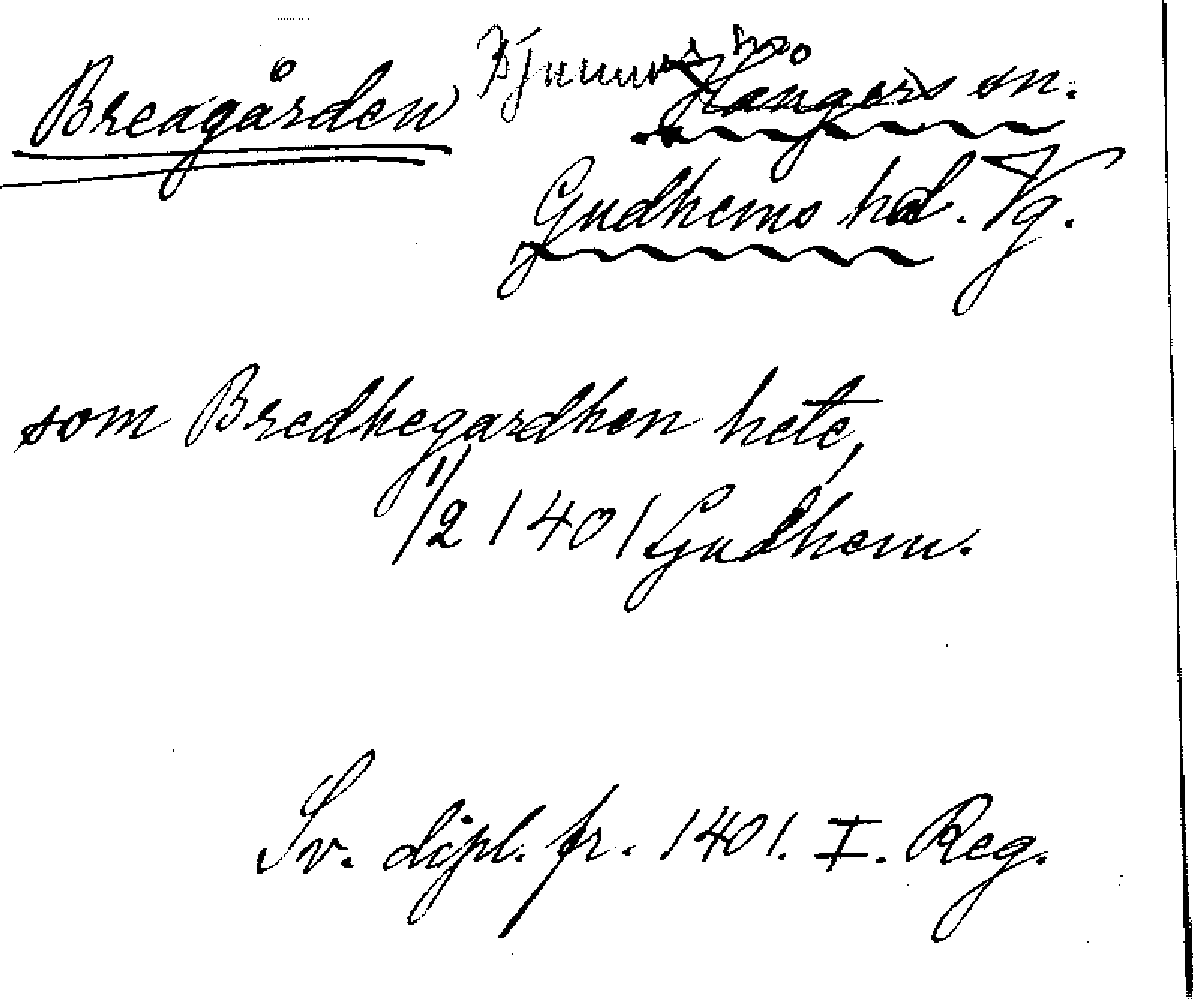 Breagården Hångers sn.
Gudhems hd. Vg.
som Bredhegardhen hete,
1/2 1401 Gudhem.
Sv. dipl. fr. 1401. I. Reg.